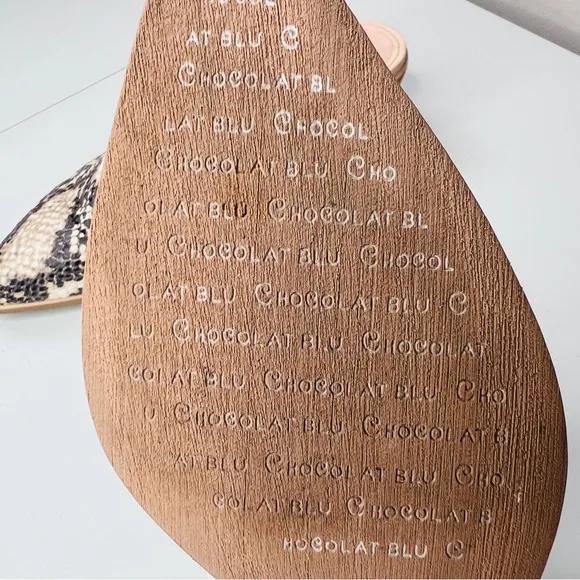 HOCOL
AT BLU C
CHOCOLAT BL
LAT BLU CHOCOL
CHOCOLAT BLU CHO
OLAT BLU CHOCOLAT BL
U CHOCOLAT BLU CHOCOL
OLAT BLU CHOCOLAT BLU C
LU CHOCOLAT BLU CHOCOLAT
COLAT BLU CHOCOLAT BLU CHO
U CHOCOLAT BLU CHOCOLAT B
AT BLU CHOCOLAT BLU CHO
COLAT BLU CHOCOLAT B
HOCOLAT BLU C